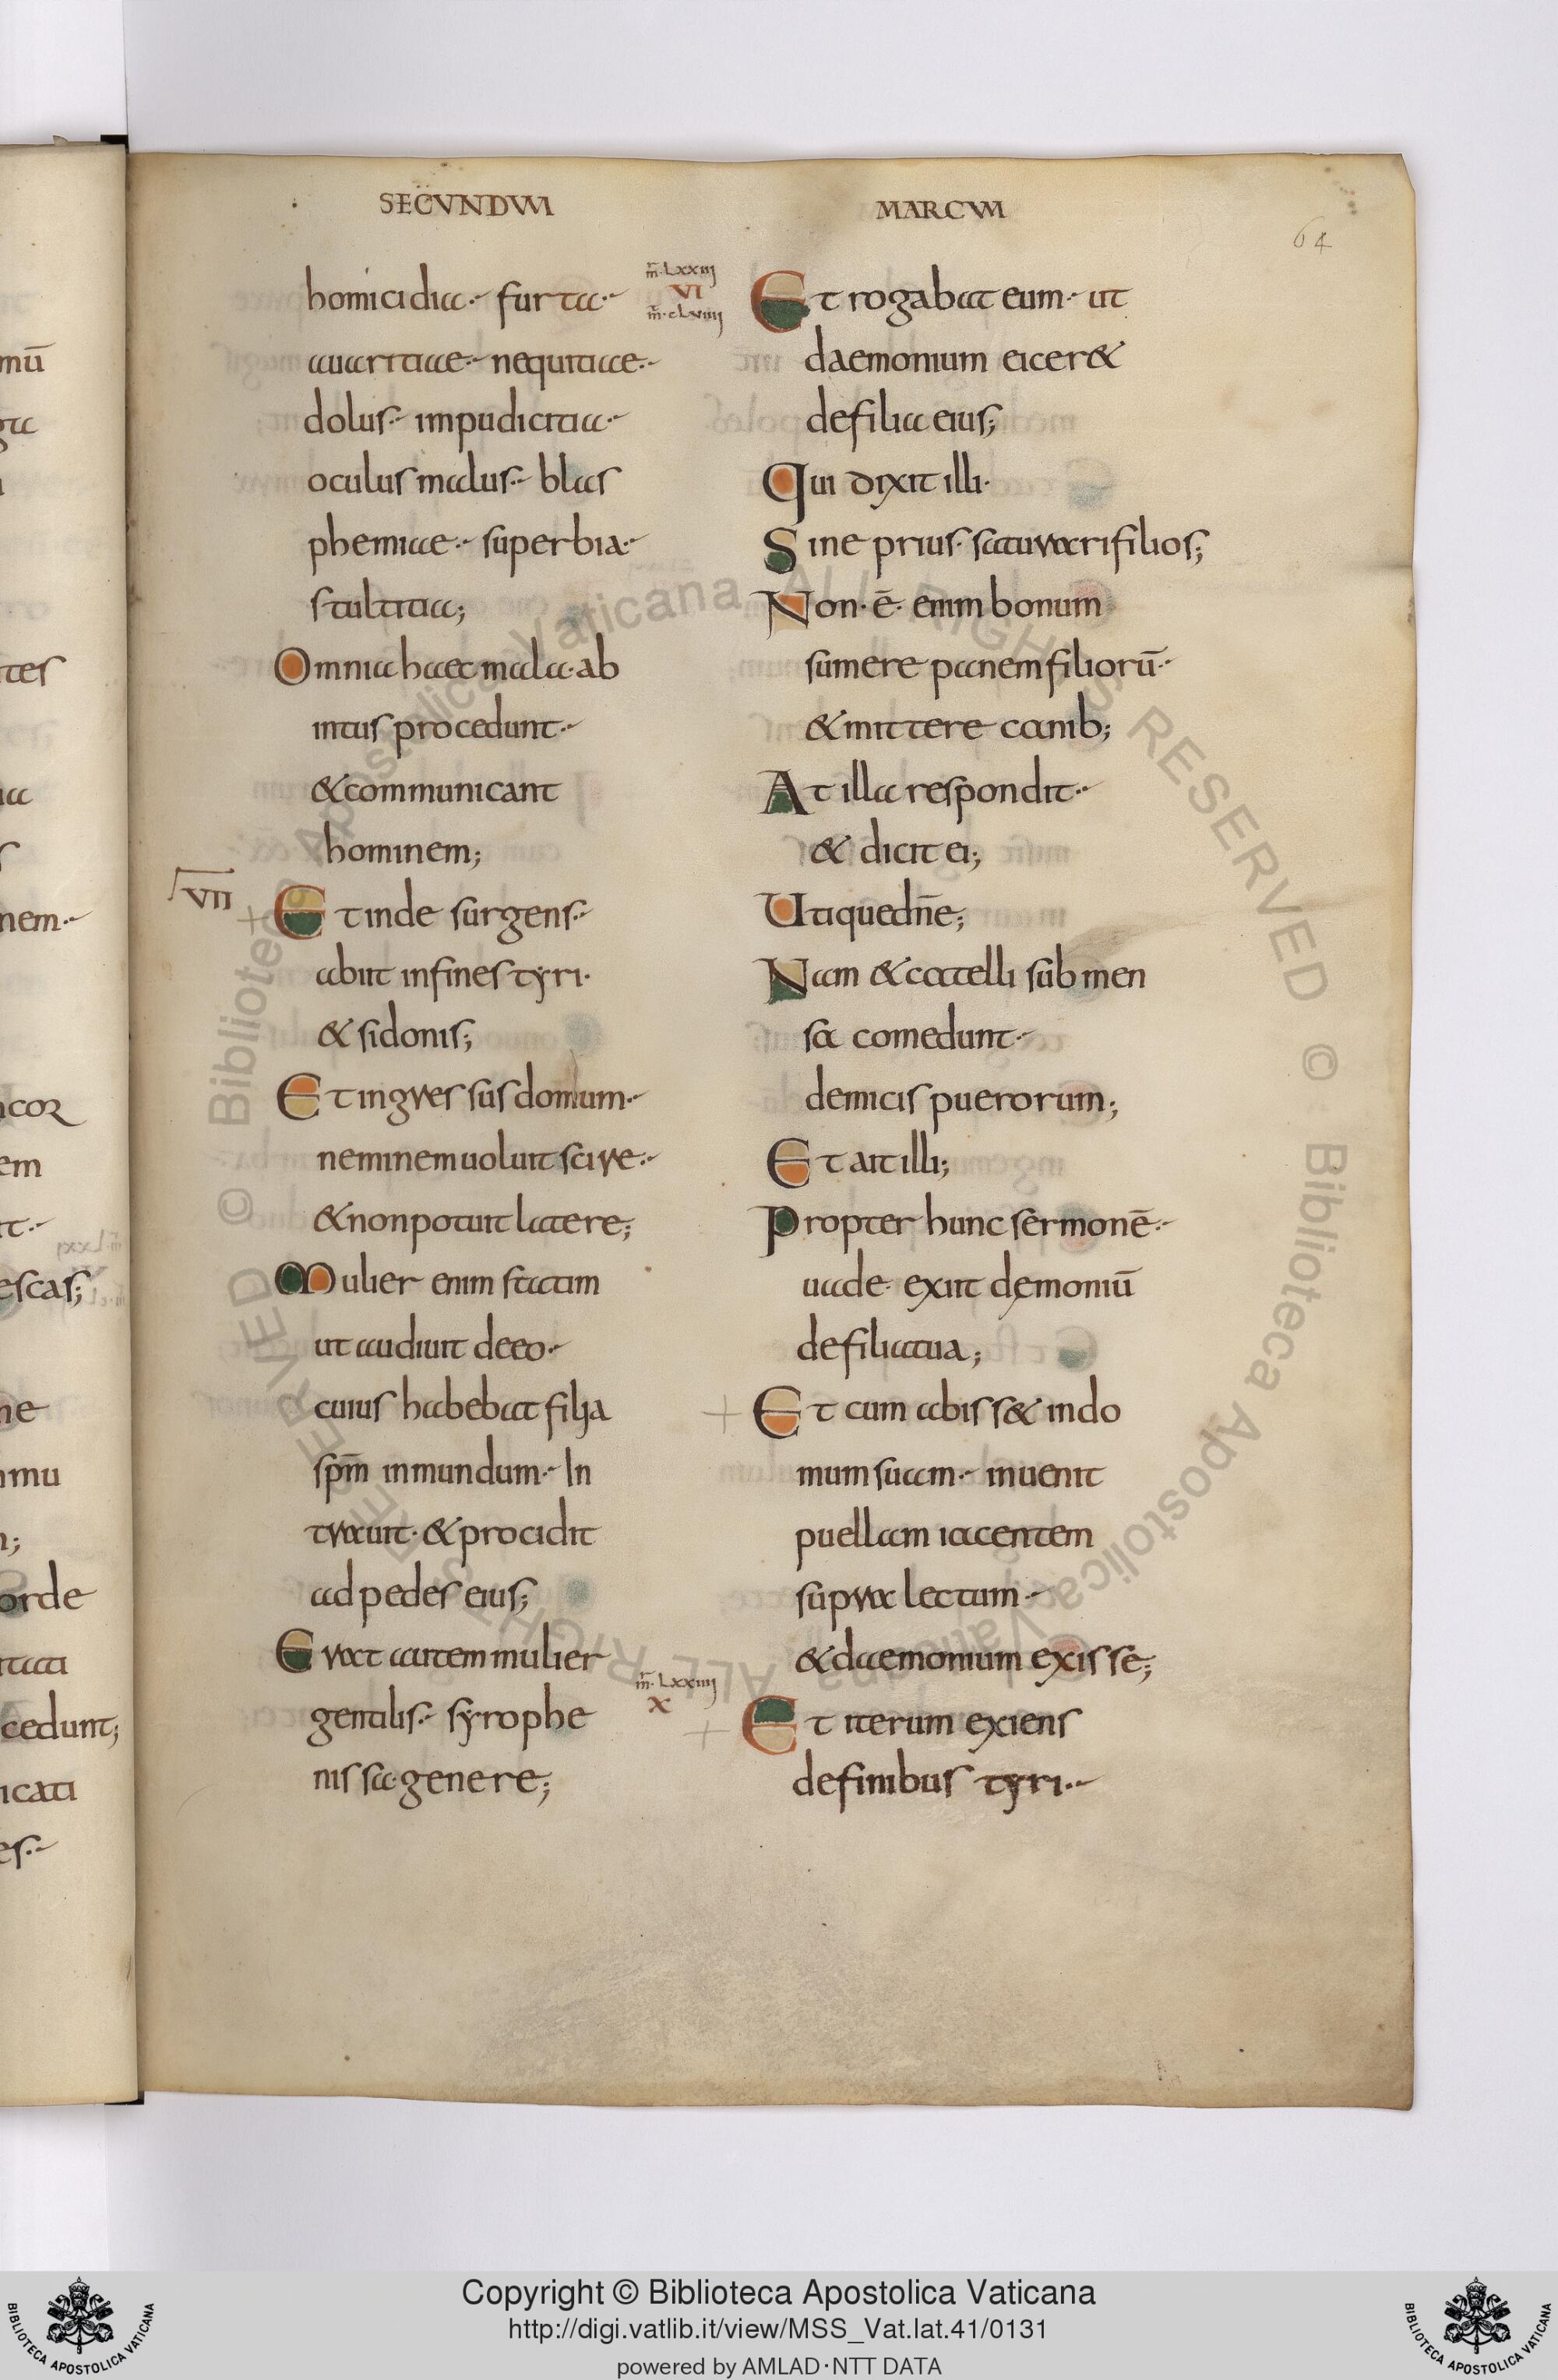 SECUNDUM
MARCUM
64
homicidia· furta·
auaritiae· nequitiae·
dolus· impudicitia·
oculus malus· blas
phemiae· superbia·
stultitia;
Omnia haec mala· ab
intus procedunt·
& communicant
hominem;
VII
Et inde surgens·
abiit in fines tyri·
& sidonis;
Et ingressus domum·
neminem uoluit scire·
& non potuit latere;
Mulier enim statim
ut audiuit de eo·
cuius habebat filia
spm̄ inmundum· In
trauit· & procidit
ad pedes eius;
Erat autem mulier
gentilis· syrophe
nissa· genere;
m̄·LXXIII
VI
m̄·CLVIIII
Et rogabat eum· ut
daemonium eicer&
de filia eius;
Qui dixit illi·
Sine prius· saturari filios;
Non· ē· enim bonum
sumere panem filiorū·
& mittere canib;
At illa respondit·
& dicit ei;
Utique dn̄e;
Nam & catelli sub men
sa comedunt·
de micis puerorum;
Et ait illi;
Propter hunc sermonē·
uade· exiit dęmoniū
de filia tua;
Et cum abiss& in do
mum suam· inuenit
puellam iacentem
supra lectum·
& daemonium exisse;
m̄·LXXIIII
X
Et iterum exiens
de finibus tyri·
mū
 tes
nem·
em
escas;
orde
cedunt;
icati
es·
© Biblioteca Apostolica Vaticana ALL RIGHTS RESERVED © Biblioteca Apostolica Vaticana ALL RIGHTS RESERVED
Copyright © Biblioteca Apostolica Vaticana
http://digi.vatlib.it/view/MSS_Vat.lat.41/0131
powered by AMLAD·NTT DATA
BIBLIOTECA APOSTOLICA VATICANA
BIBLIOTECA APOSTOLICA VATICANA